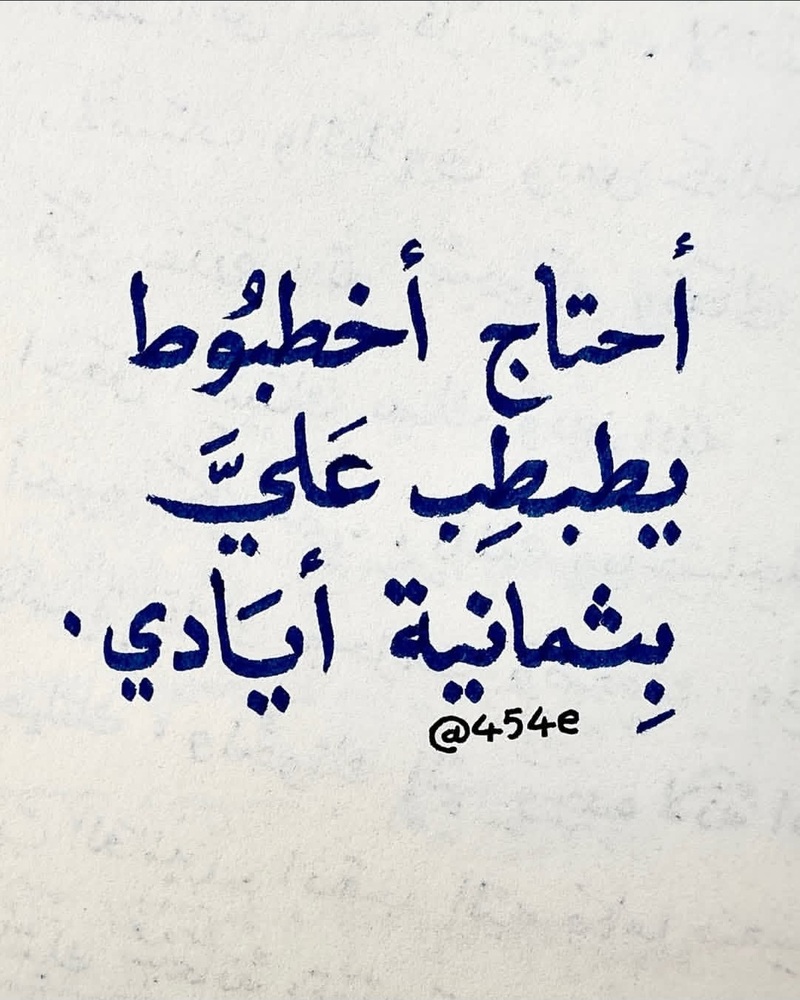 أحتاج أخطبُوط
يطبطِب عَليَّ
بِثمانية أيَادي.
@454e